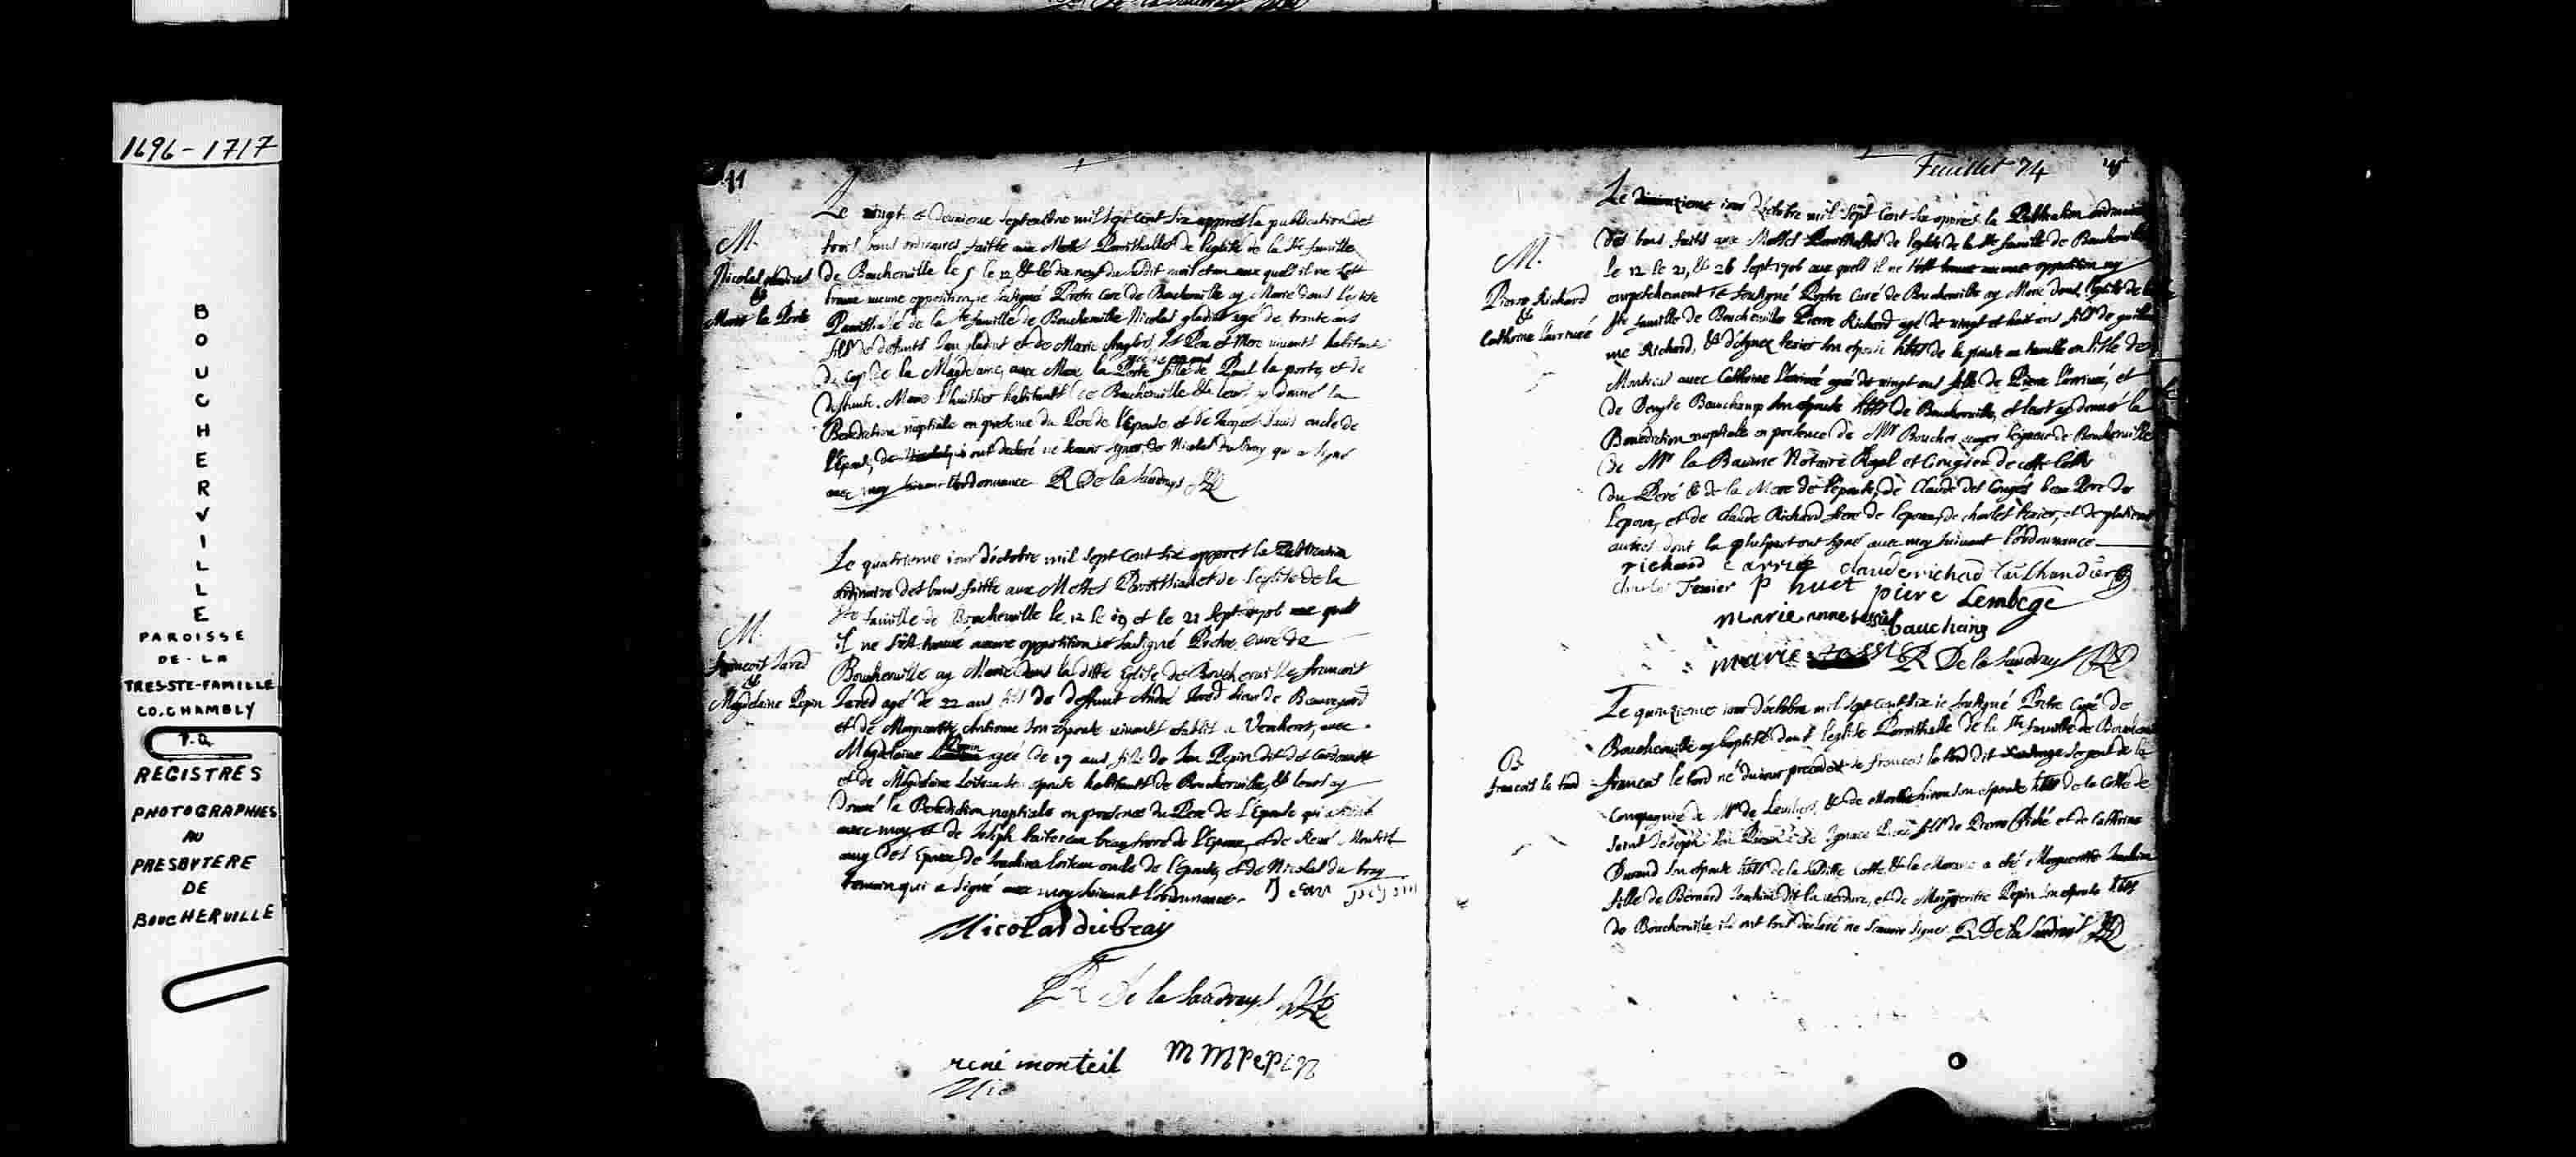 1696-1717
BOUCHERVILLE
PAROISSE
DE-LA
TRES-STE-FAMILLE
CO.CHAMBLY
P.Q.
REGISTRES
PHOTOGRAPHIES
AU
PRESBYTERE
DE
BOUCHERVILLE
Le vingt et deuxieme septembre mil sept cent six appres la publication des
trois bans ordinaires faitte aux Messes Parroissialles de l'eglise de la Ste famille
de Boucherville le 5 le 12 & le dix neuf du susdit mois et an aux quels il ne s'est
trouvé aucune opposition je soussigné Prêtre Curé de Boucherville ay Marié dans l'eglise
Parroissiale de la Ste famille de Boucherville Nicolas gladus agé de trente ans
fils de defunts Jean gladus et de Marie Langlois les Pere et Mere vivants habitants
du cap de la Magdelaine, avec Marie la Porte fille de Paul la porte, et de
deffunte Marie l'huissier habitants de Boucherville & leurs ay donné la
Benediction nuptiale en presence du Pere de l'Epouse et de Jacques oncle de
l'Epoux, ont declaré ne scavoir signer, de Nicolas Dubray qui a signé
avec moy suivant l'ordonnance R De la Saudrays
M.
Nicolas gladus
&
Marie la Porte
Le quatrieme jour d'octobre mil sept cent six appres la Publication
ordinaire des bans faitte aux Messes Parroissialles de l'eglise de la
Ste famille de Boucherville le 12 le 19 et le 21 Sept 1706 aux quels
il ne s'est trouvé aucune opposition je soussigné Prêtre curé de
Boucherville ay Marié dans la ditte Eglise de Boucherville francois
Jared agé de 22 ans fils de deffunt André Jared sieur de Beauregard
et de Marguerite Antiome son epouse vivants etablis a Vercheres, avec
Magdelaine Pepin agée de 17 ans fille de Jean Pepin dit des Cardonnets
et de Magdelaine Loiseau son epouse habitants de Boucherville, & leurs ay
donné la Benediction nuptiale en presence du Pere de L'Epouse qui a signé
avec moy, et de Joseph beau frere de l'Epoux, et de René Monteil
amy des Epoux, de Joachim Loiseau oncle de l'epouse, et de Nicolas du bray
temoin qui a signé avec moy suivant l'ordonnance. Jean pepin
M.
francois Jared
&
Magdelaine Pepin
Nicolas dubray
R De la Saudrays
rené monteil M M Pepin
Nic
Feuillet 74
Le jour d'octobre mil sept cent six appres la Publication ordinaire
des bans faits aux Messes Parroissialles de l'eglise de la Ste famille de Boucherville
le 12 le 21, & 26 Sept 1706 aux quels il ne s'est trouvé aucune opposition ny
empeschement je soussigné Prêtre Curé de Boucherville ay Marié dans l'eglise de la
Ste famille de Boucherville Pierre Richard agé de vingt et huit ans fils de guillau
me Richard, & d'Agnez texier son epouse habts de la pointe au tremble en l'isle de
Montreal avec Catherine l'arrivée agée de vingt ans fille de Pierre l'arrivée, et
de Denyse Beauchamp son epouse habts de Boucherville, et leurs ay donné la
Benediction nuptiale en presence de Mr Boucher seigneur de Boucherville
de Mr la Baume Notaire Royal et Cirugien de cette Coste
du Peré & de la Mere de l'epouse, de Claude des Congés beau Pere de
l'epoux, et de Claude Richard frere de l'epoux, de charles texier, et de plusieurs
autres dont la pluspart ont signé avec moy suivant l'ordonnance
M.
Pierre Richard
&
Catherine Larrivée
richard Larrivé clauderichad tailhandier
Charles Texier P huet piere Lembege
marie anne
bauchang
marie R De la Saudrays
Le quinzieme jour d'octobre mil sept cent six je soussigné Prêtre Curé de
Boucherville ay baptisé dans l'eglise Parroissialle de la Ste famille de Boucherville
francois le tard né du jour precedent de francois le tard dit sergent de la
Compagnie de Mr de & de Marthe son epouse habts de la Coste de
Saint Joseph son Parain a été Ignace Piché fils de Pierre Piché et de Catherine
Durand son epouse habts de la susditte Coste & la Maraine a eté Marguerite Joachim
fille de Bernard Joachim dit la verdure, et de Marguerite Pepin son epouse habts
de Boucherville ils ont tous declaré ne scavoir signer R De la Saudrays
B.
francois le tard